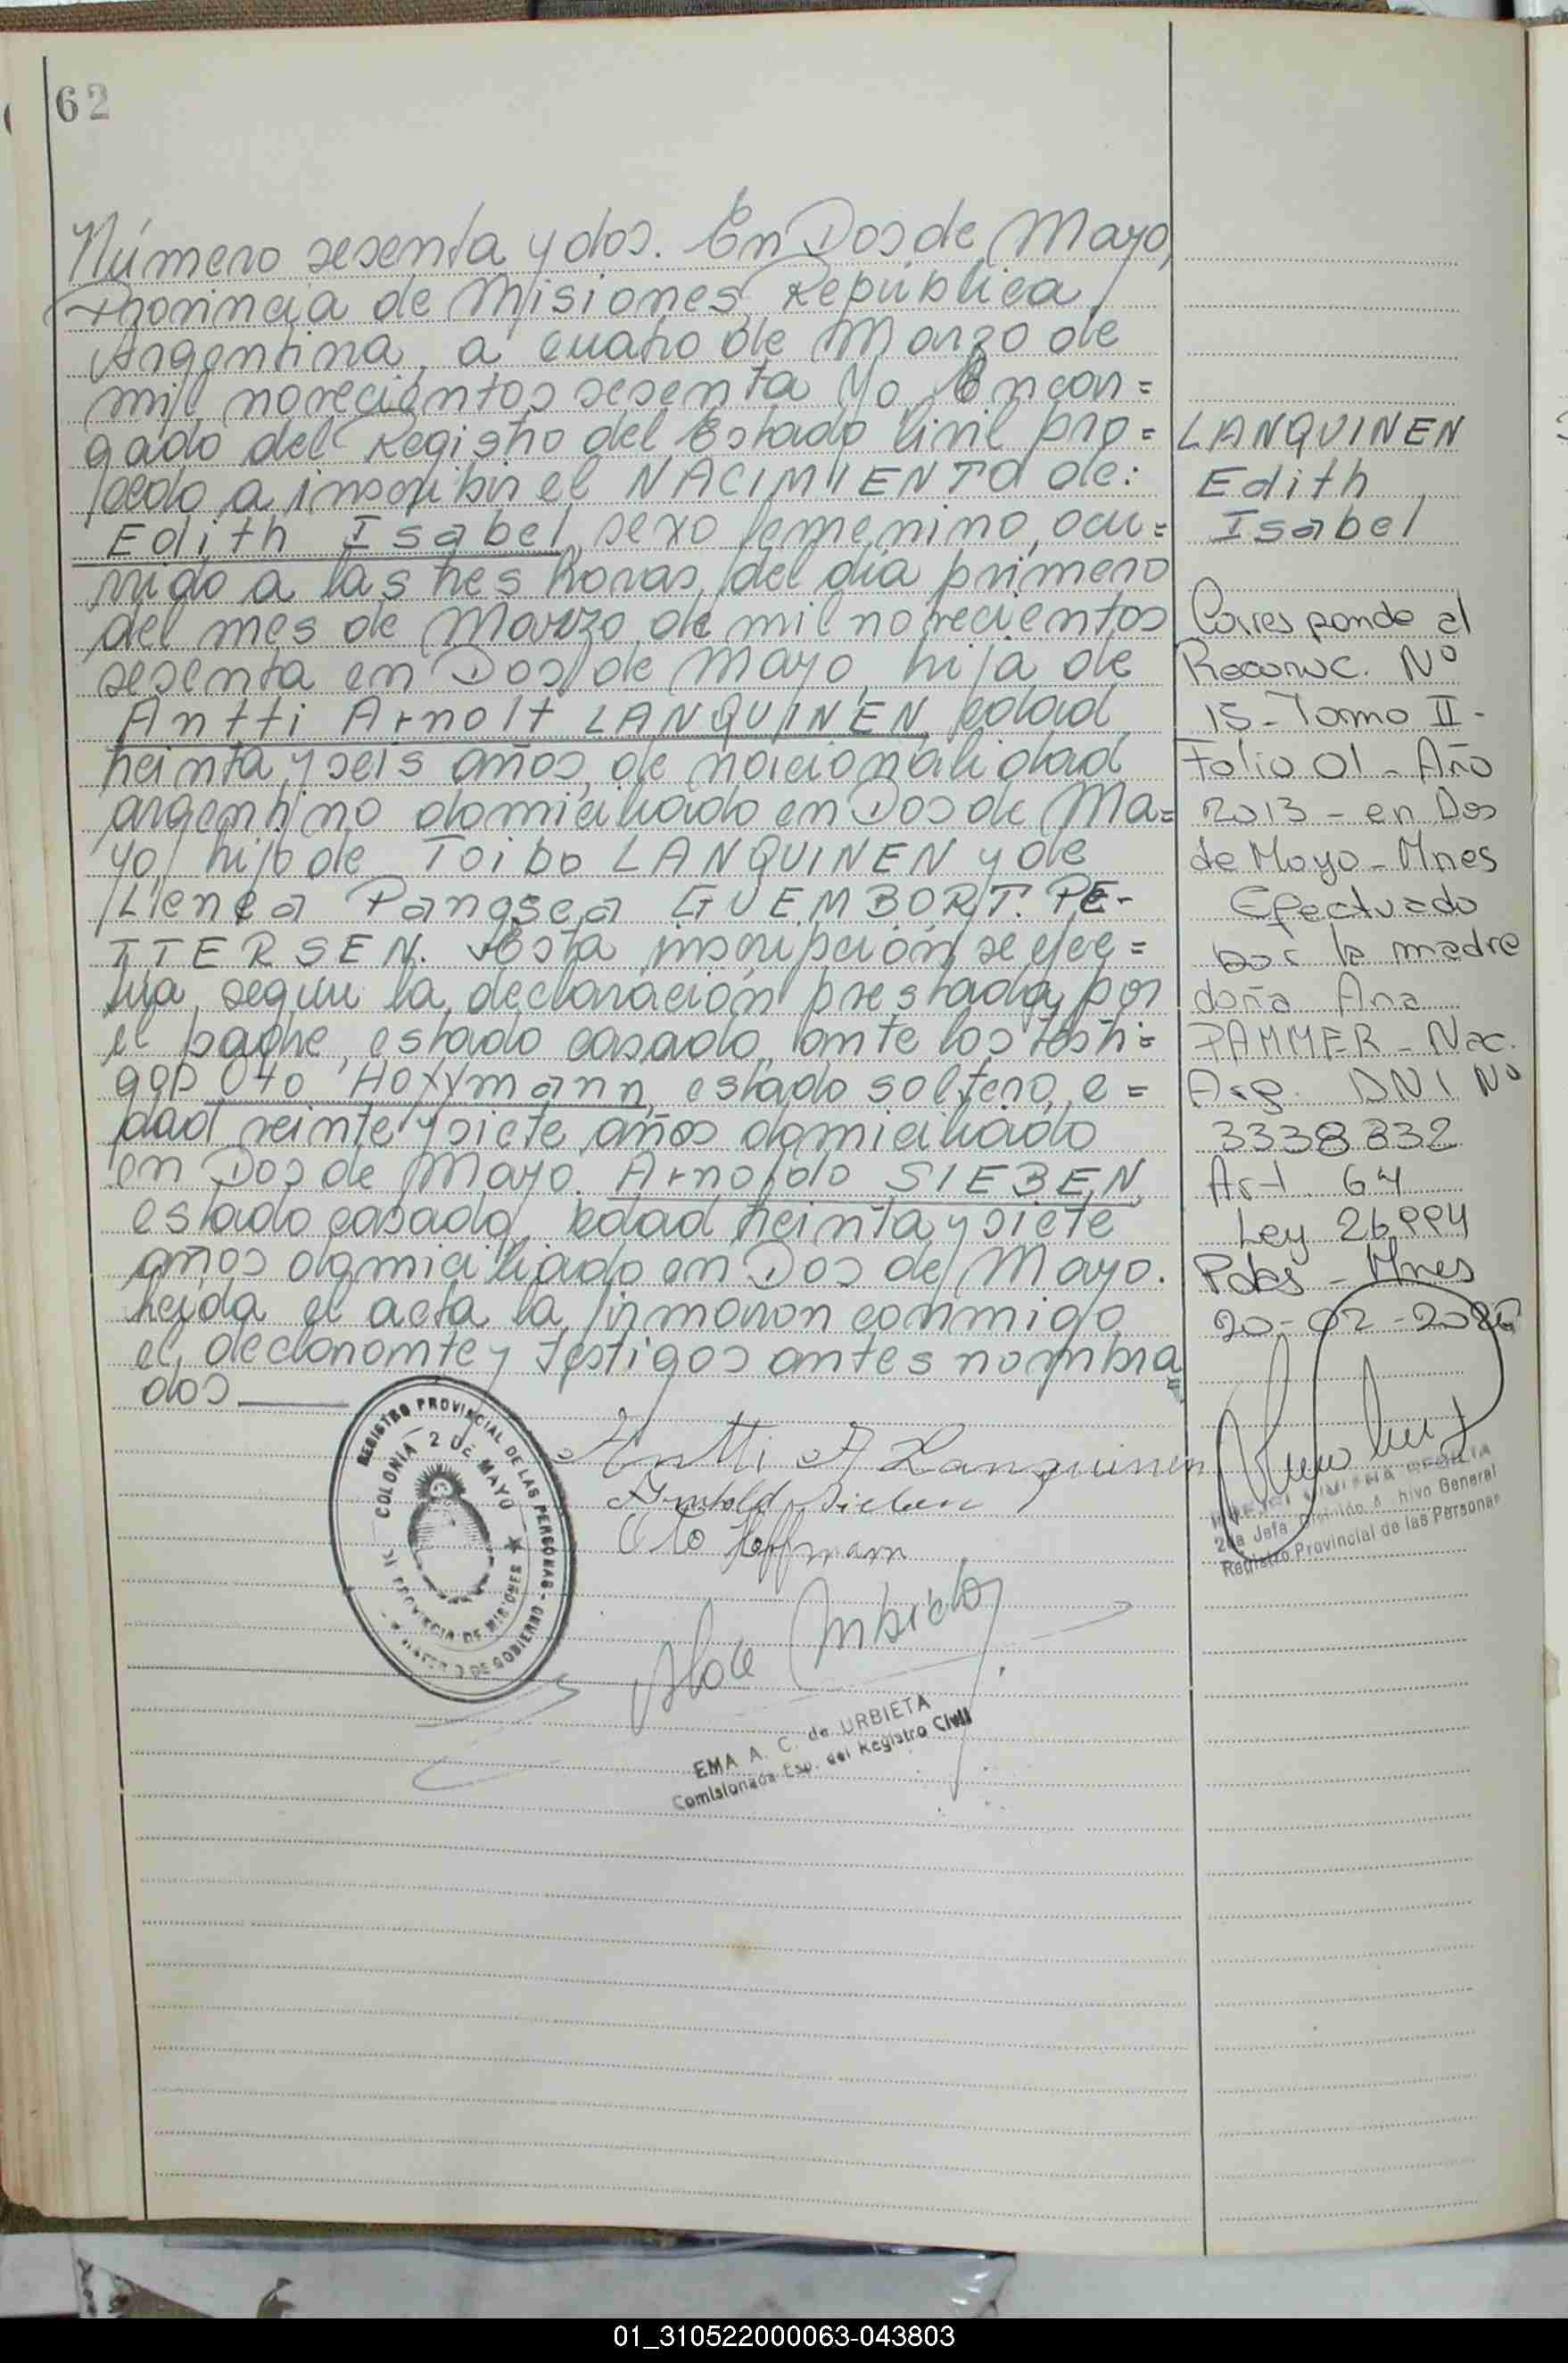 62
Número sesenta y dos. En Dos de Mayo,
Provincia de Misiones, República
Argentina, a cuatro de Marzo de
mil novecientos sesenta Yo, Encar=
gado del Registro del Estado Civil pro=
cedo a inscribir el NACIMIENTO de:
Edith Isabel, sexo femenino, ocu=
rrido a las tres horas, del día primero
del mes de Marzo de mil novecientos
sesenta en Dos de Mayo, hija de
Antti Arnolt LANQUINEN, edad
treinta y seis años, de nacionalidad
argentino domiciliado en Dos de Ma=
yo, hijo de Toibo LANQUINEN y de
GUEMBORT. PE-
TTERSEN. Esta inscripción se efec=
túa, según la declaración prestada, por
el padre, estado casado, ante los testi=
gos Oto Hoffmann, estado soltero, e=
dad veinte y siete años domiciliado
en Dos de Mayo. Arnoldo SIEBEN,
estado casado, edad treinta y siete
años domiciliado en Dos de Mayo.
Leída el acta la firmaron conmigo,
el declarante y testigos antes nombra
dos
LANQUINEN
Edith
Isabel
Corresponde al
Reconoc. Nº
15 - Tomo II -
Folio 01 - Año
2013 - en Dos
de Mayo - Mnes
Efectuado
por la madre
doña Ana
PAMMER - Nac.
Arg. DNI Nº
3338832
Art. 64
Ley 26994
Pdas - Mnes
20-02-
REGISTRO PROVINCIAL DE LAS PERSONAS
COLONIA 2 DE MAYO
PROVINCIA DE MISIONES
DE GOBIERNO
Antti A Lanquinen
Arnoldo Sieben
Oto Hoffmann
EMA A. C. de URBIETA
Comisionada Esp. del Registro Civil
2da Jefa División Archivo General
Registro Provincial de las Personas
01_310522000063-043803